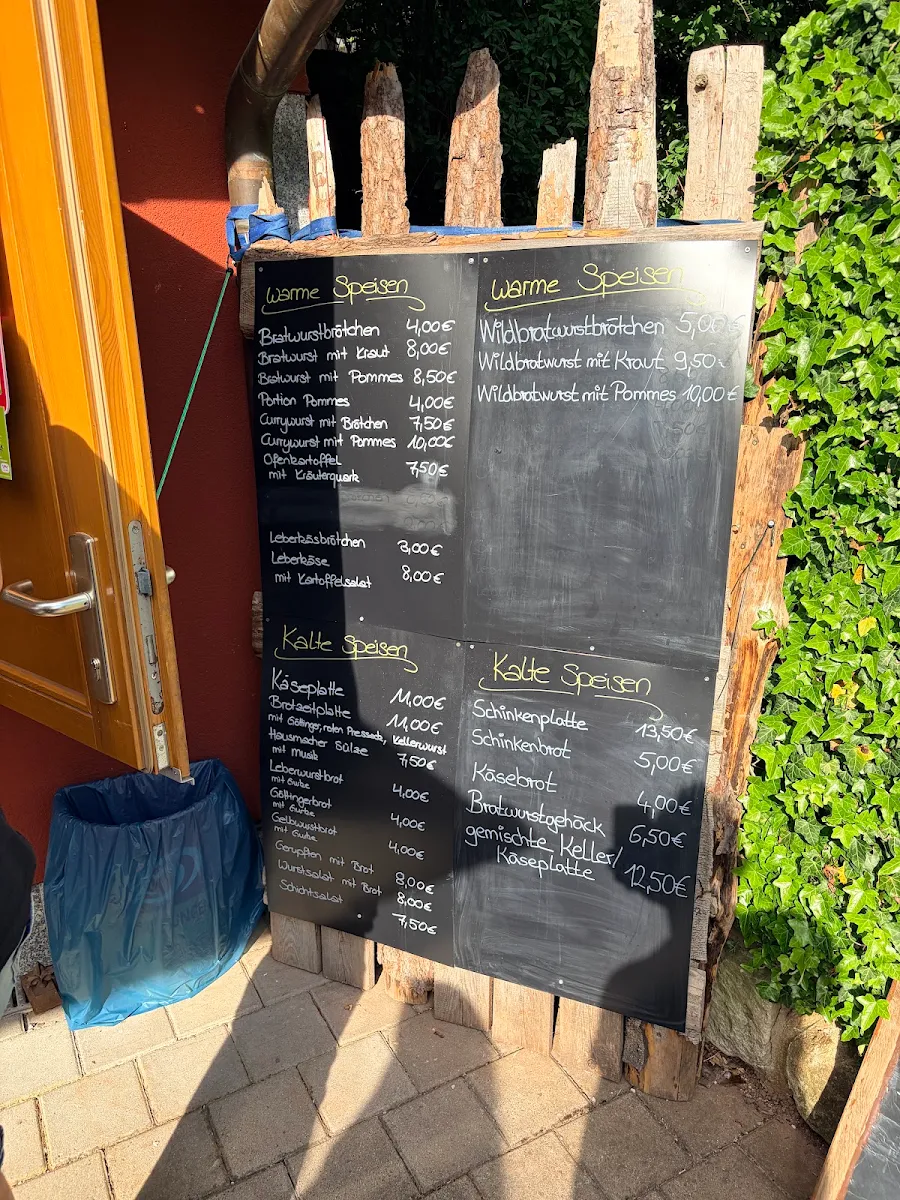 Warme Speisen
Bratwurstbrötchen 4,00€
Bratwurst mit Kraut 8,00€
Bratwurst mit Pommes 8,50€
Portion Pommes 4,00€
Currywurst mit Brötchen 7,50€
Currywurst mit Pommes 10,00€
Ofenkartoffel
mit Kräuterquark 7,50€
Leberkäsbrötchen 3,00€
Leberkäse
mit Kartoffelsalat 8,00€
Warme Speisen
Wildbratwurstbrötchen 5,00€
Wildbratwurst mit Kraut 9,50€
Wildbratwurst mit Pommes 10,00€
Kalte Speisen
Käseplatte 11,00€
Brotzeitplatte 11,00€
mit Göttinger, roten Pressack, Kellerwurst
Hausmacher Sülze 7,50€
mit Musik
Leberwurstbrot 4,00€
mit Gurke
Göttingerbrot 4,00€
mit Gurke
Gelbwurstbrot 4,00€
mit Gurke
Gerupften mit Brot 8,00€
Wurstsalat mit Brot 8,00€
Schichtsalat 7,50€
Kalte Speisen
Schinkenplatte 13,50€
Schinkenbrot 5,00€
Käsebrot 4,00€
Bratwurstgehäck 6,50€
gemischte Keller/
Käseplatte 12,50€